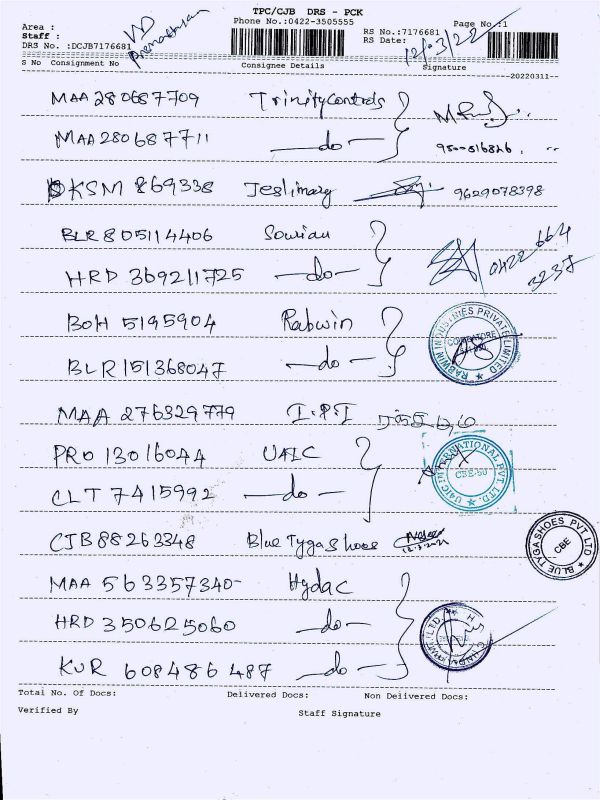 TPC/CJB DRS - PCK
Phone No.:0422-3505555
Page No.:1
Area :
Staff :
DRS No. :DCJB7176681
RS No.:7176681
RS Date: 12/3/22
S No Consignment No Consignee Details Signature
20220311--
MAA 280687709 Trinity Controls
MAA 280687711 -do-
KSM 869338 Teslimarg 9629078398
BLR 805114406 Souriau
HRD 369211725 -do- 0422 664 3237
BOH 5195904 Rabwin
BLR 151368047 -do-
RABWIN INDUSTRIES PRIVATE LIMITED
COIMBATORE
MAA 276329779 I.P.I
PRO 13016044 UAIC
CLT 7415992 -do-
U4IC INTERNATIONAL PVT. LTD.
CBE-50
CJB 88263348 Blue Tyga Shoes
BLUE TYGA SHOES PVT LTD
CBE
MAA 563357340- Hydac
HRD 350625060 -do-
KUR 608486 487 -do-
Total No. Of Docs: Delivered Docs: Non Delivered Docs:
Verified By Staff Signature